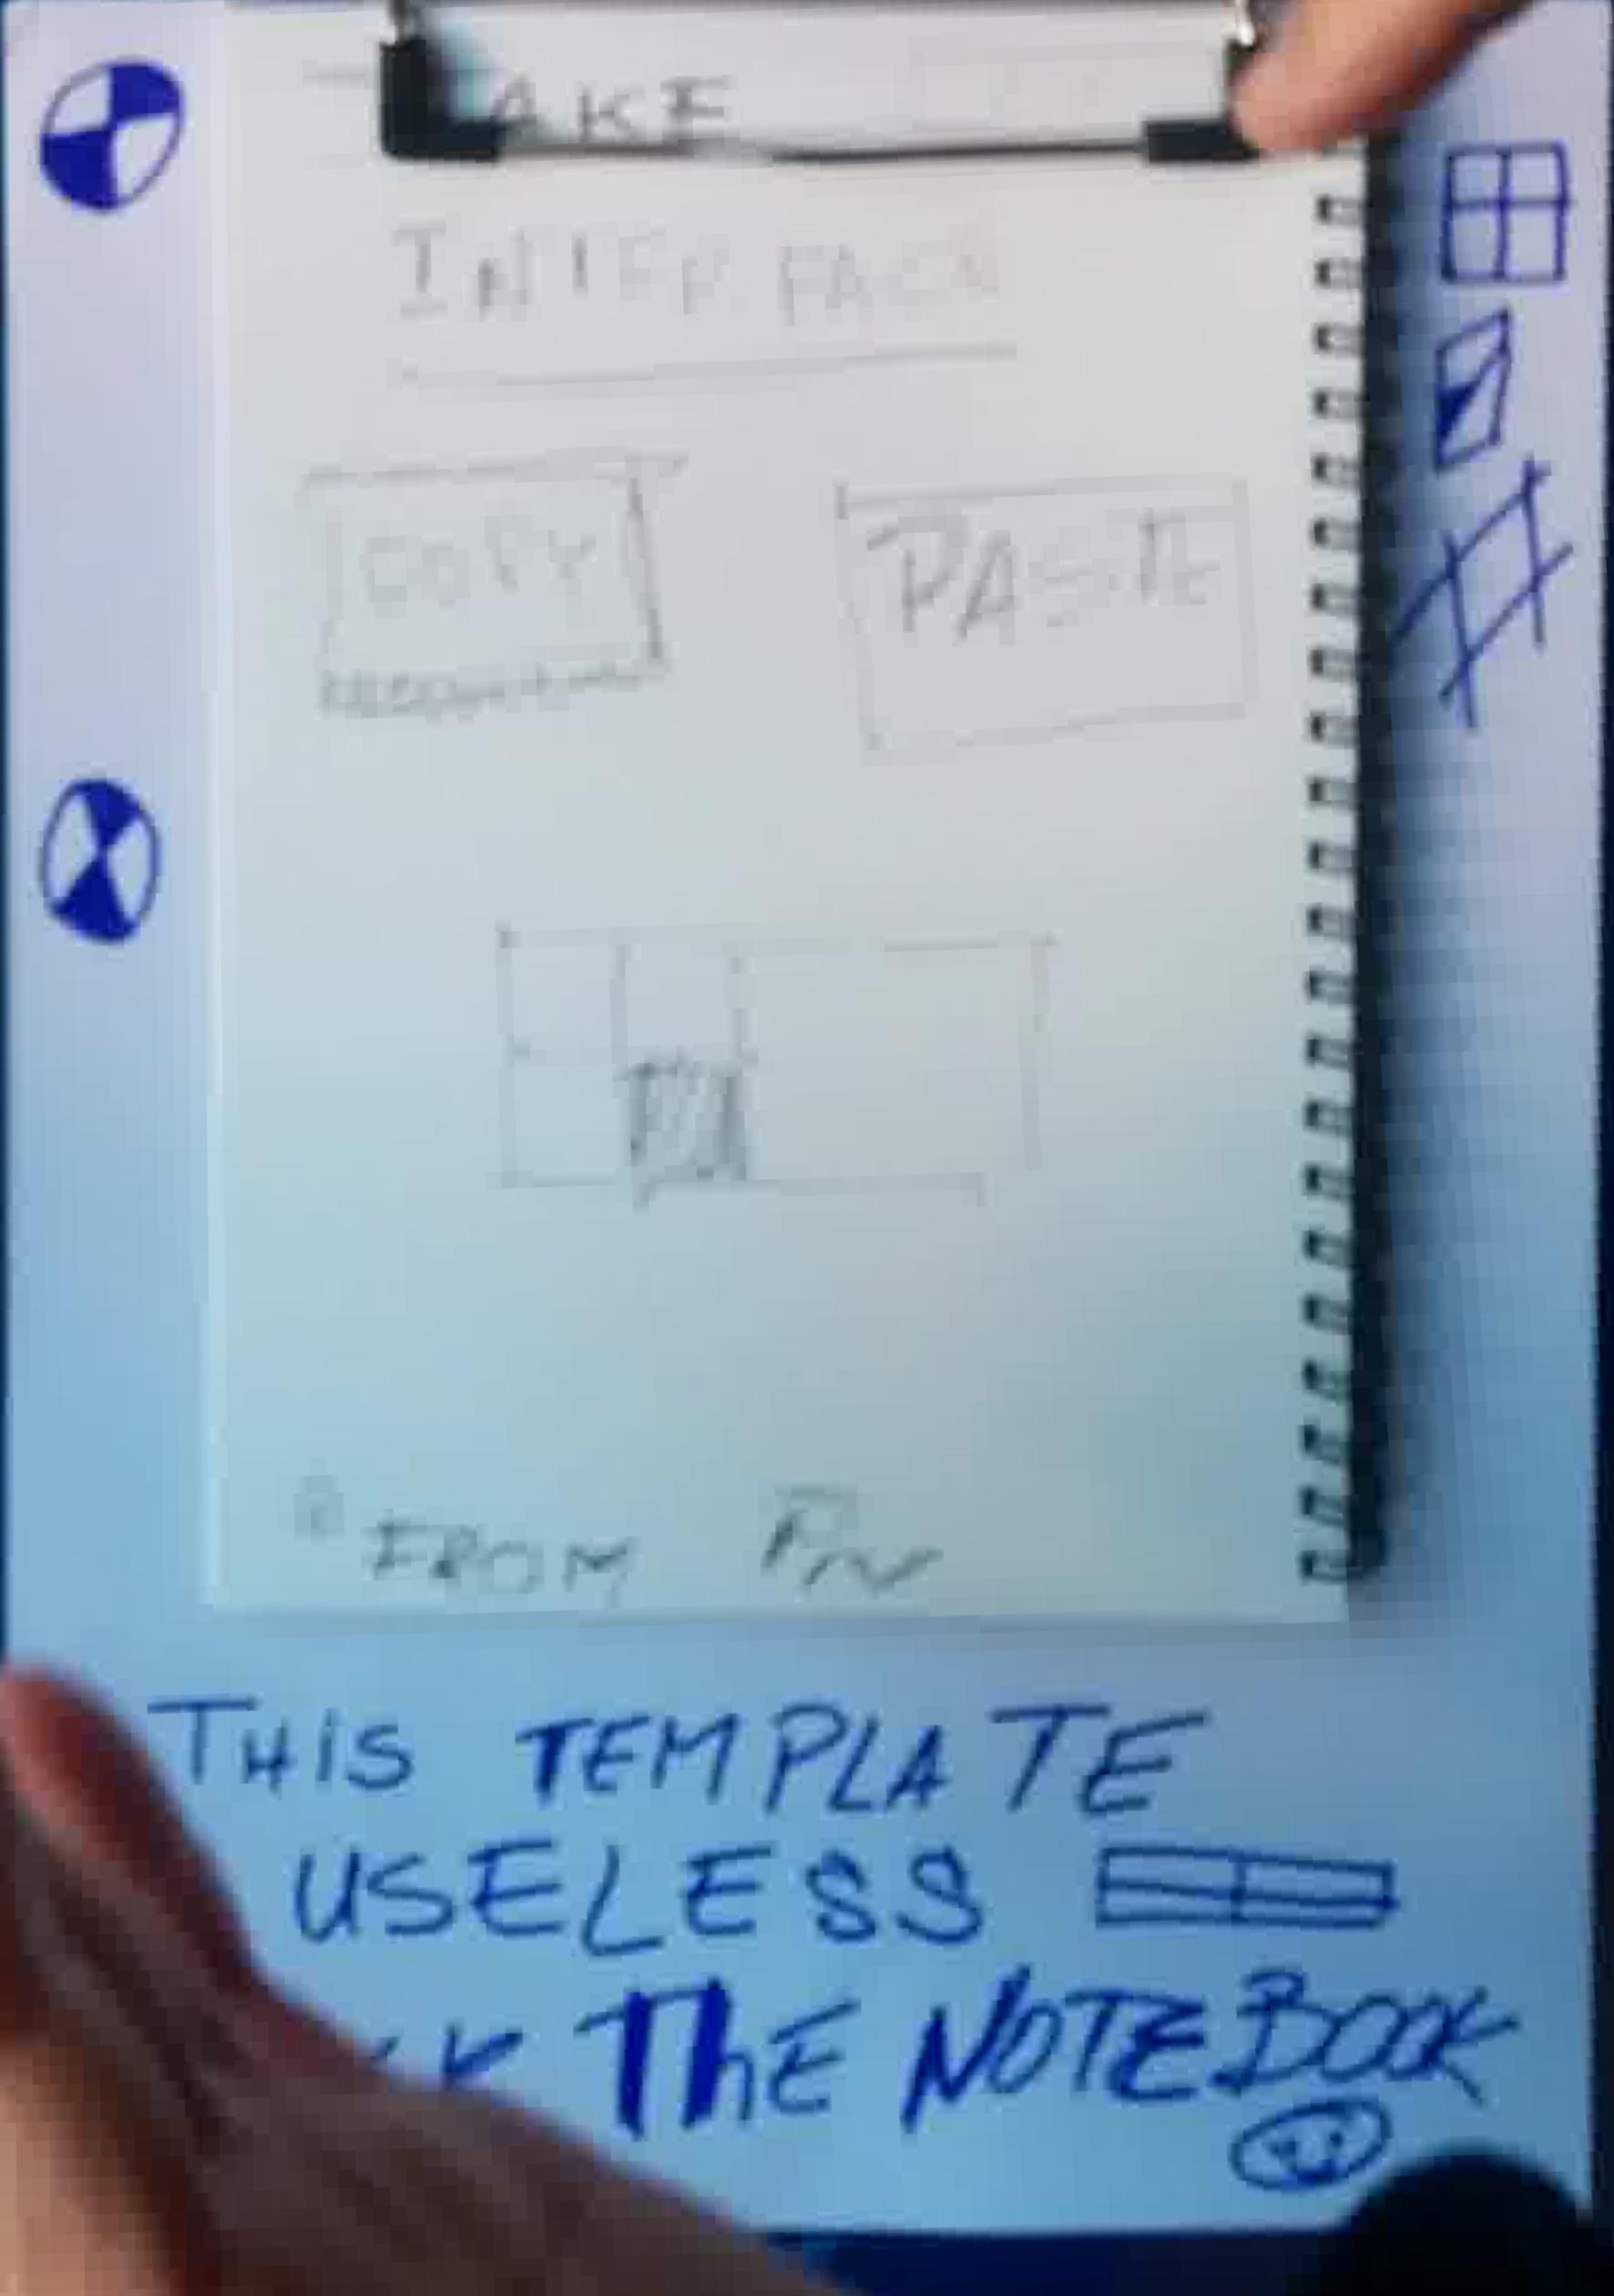 AKE
INTERFACE
COPY
PASTE
FROM
THIS TEMPLATE
USELESS
THE NOTEBOOK